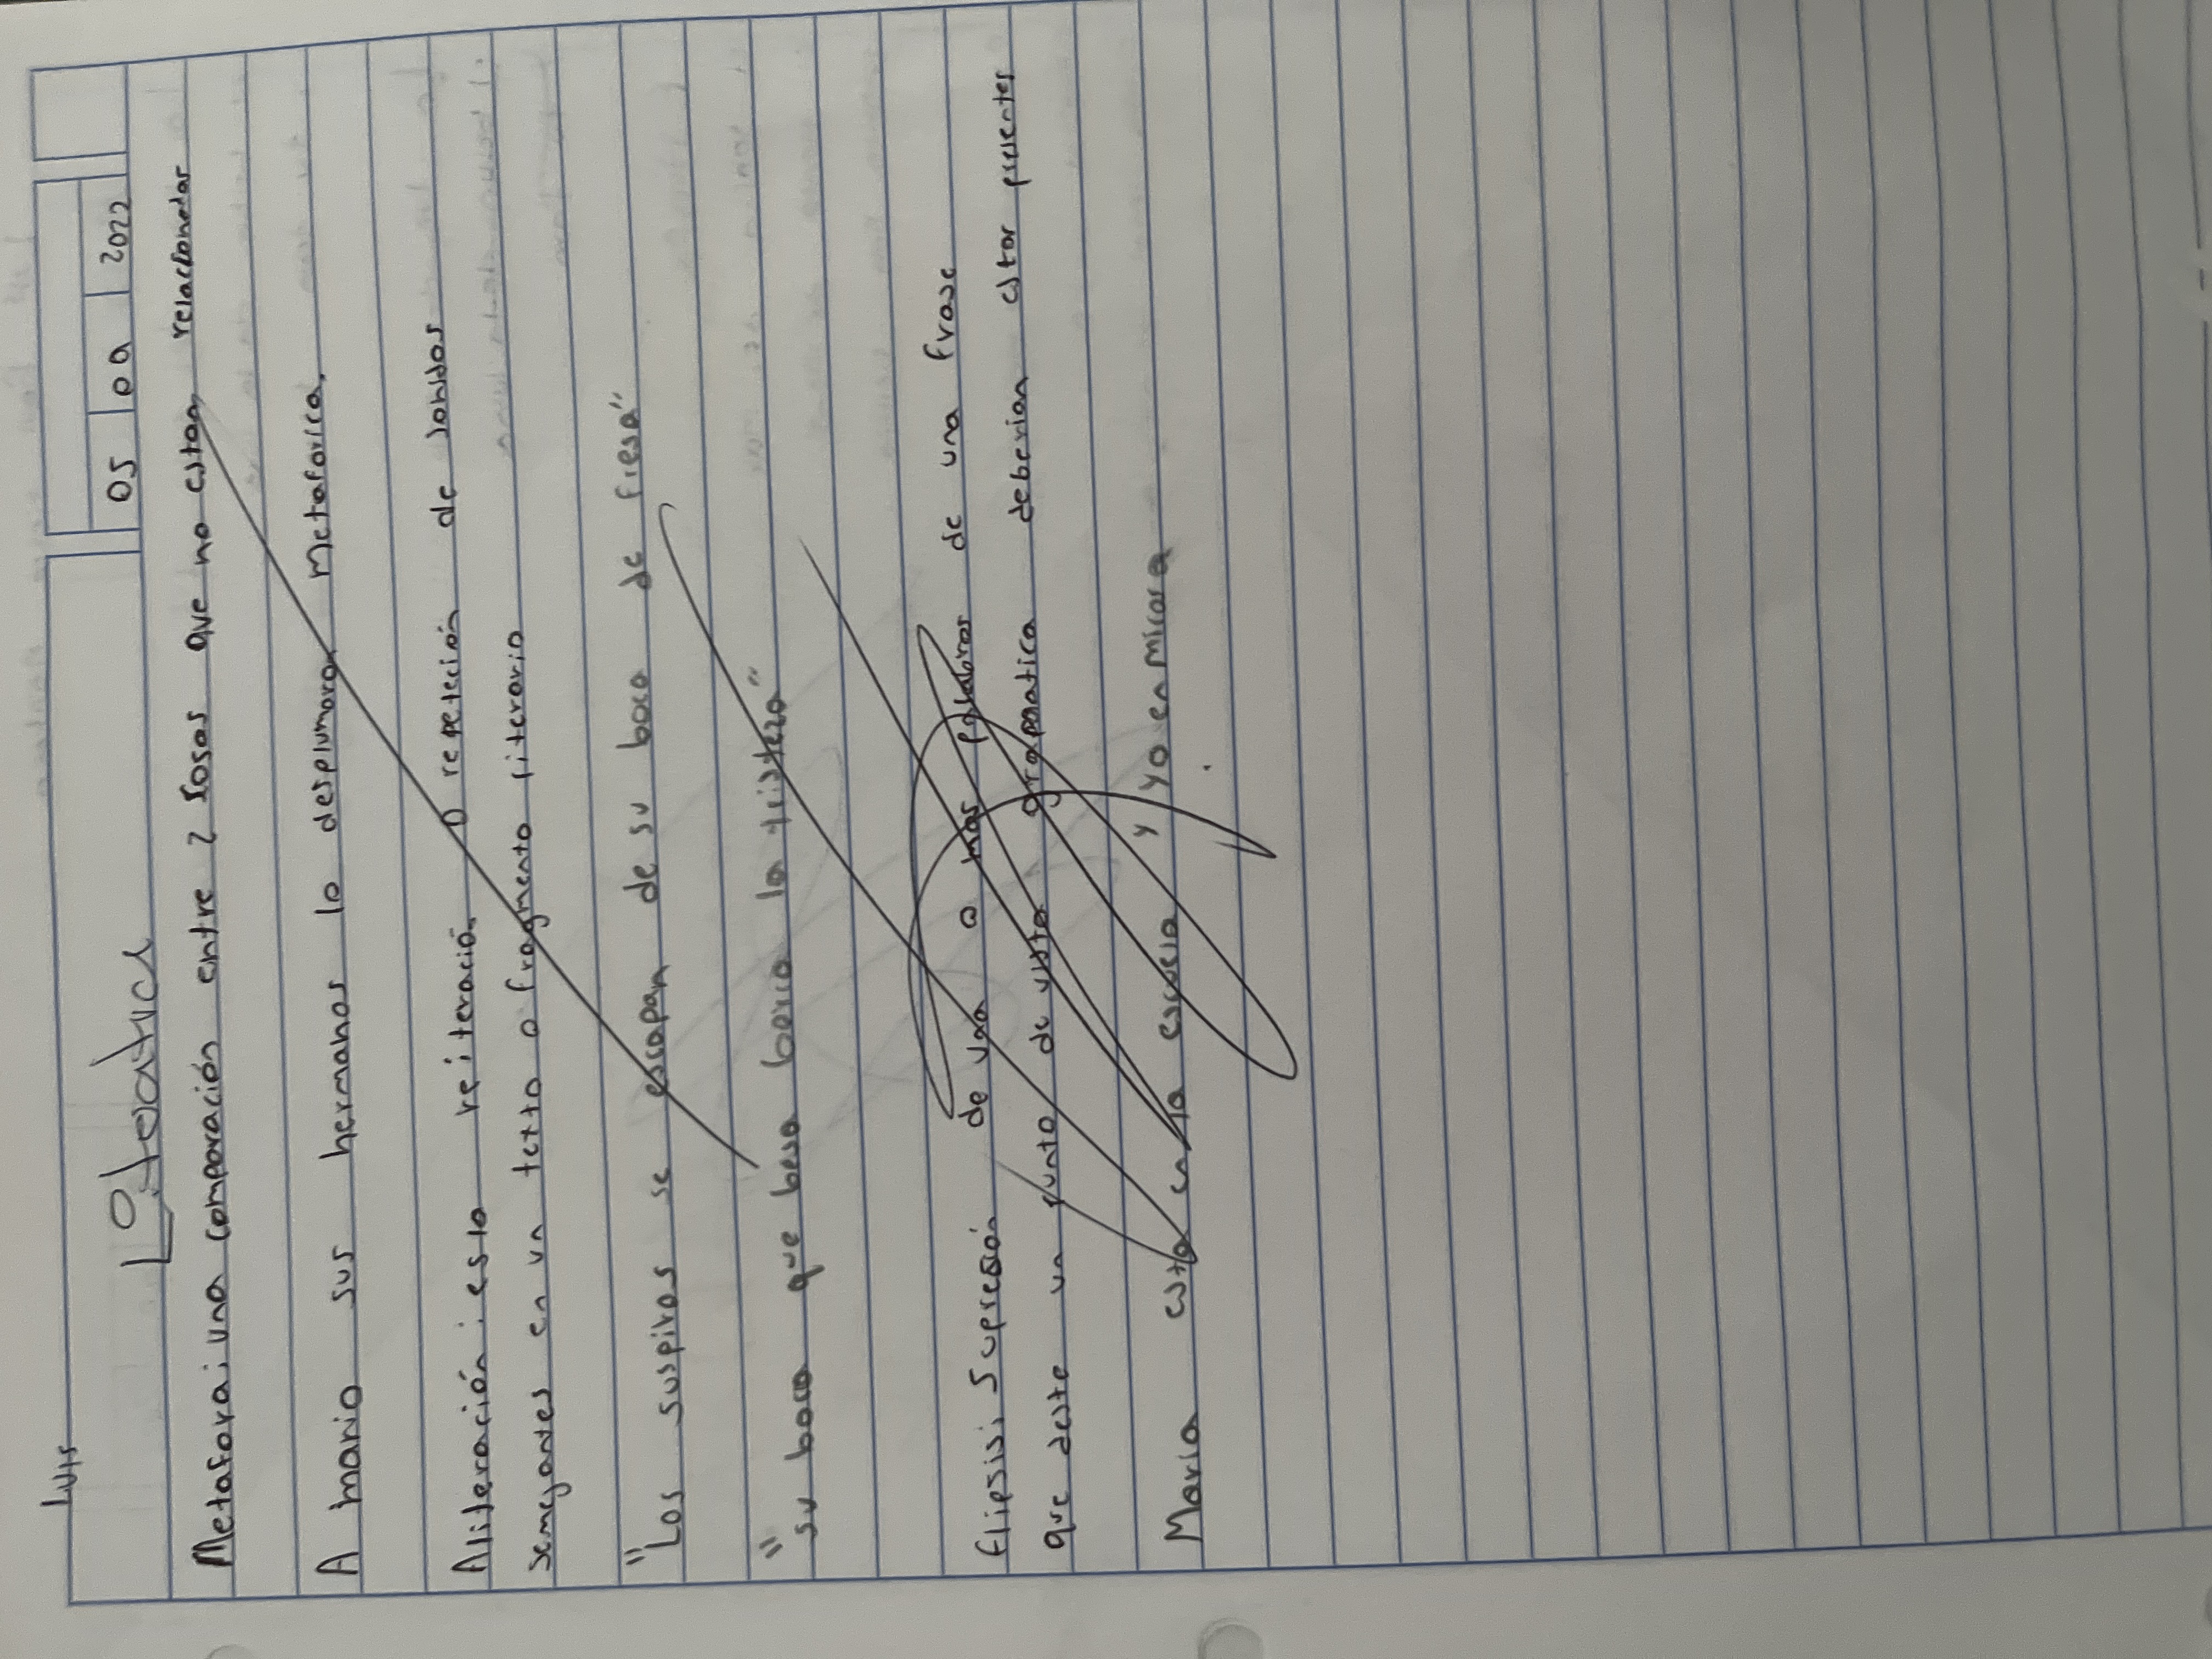 Luis
Literatura
05 09 2022
Metafora: una comparación entre 2 cosas que no estan relacionadas
A mario sus hermanos lo desplumaron Metaforica.
Aliteración: es la reiteración o repetición de sonidos
semejantes en un texto o fragmento literario
"Los suspiros se escapan de su boca de fresa"
"su boca que besa borra la tristeza"
Elipsis: Supresión de una o mas palabras de una frase
que deste un punto de vista gramatica deberian estar presentes
Maria esta en la escuela y yo en mi casa